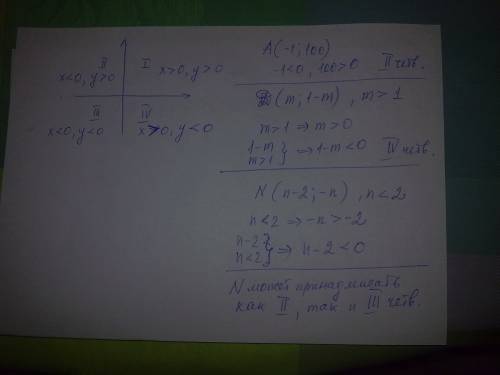 II
I
x<0, y>0
x>0, y>0
III
IV
x<0, y<0
x>0, y<0
A(-1; 100)
-1<0, 100>0 II четв.
(m; 1-m), m>1
m>1 ⇒ m>0
1-m
m>1 } ⇒ 1-m<0 IV четв.
N(n-2; -n), n<2
n<2 ⇒ -n>-2
n-2
n<2 } ⇒ n-2<0
N может принадлежать
как II, так и III четв.